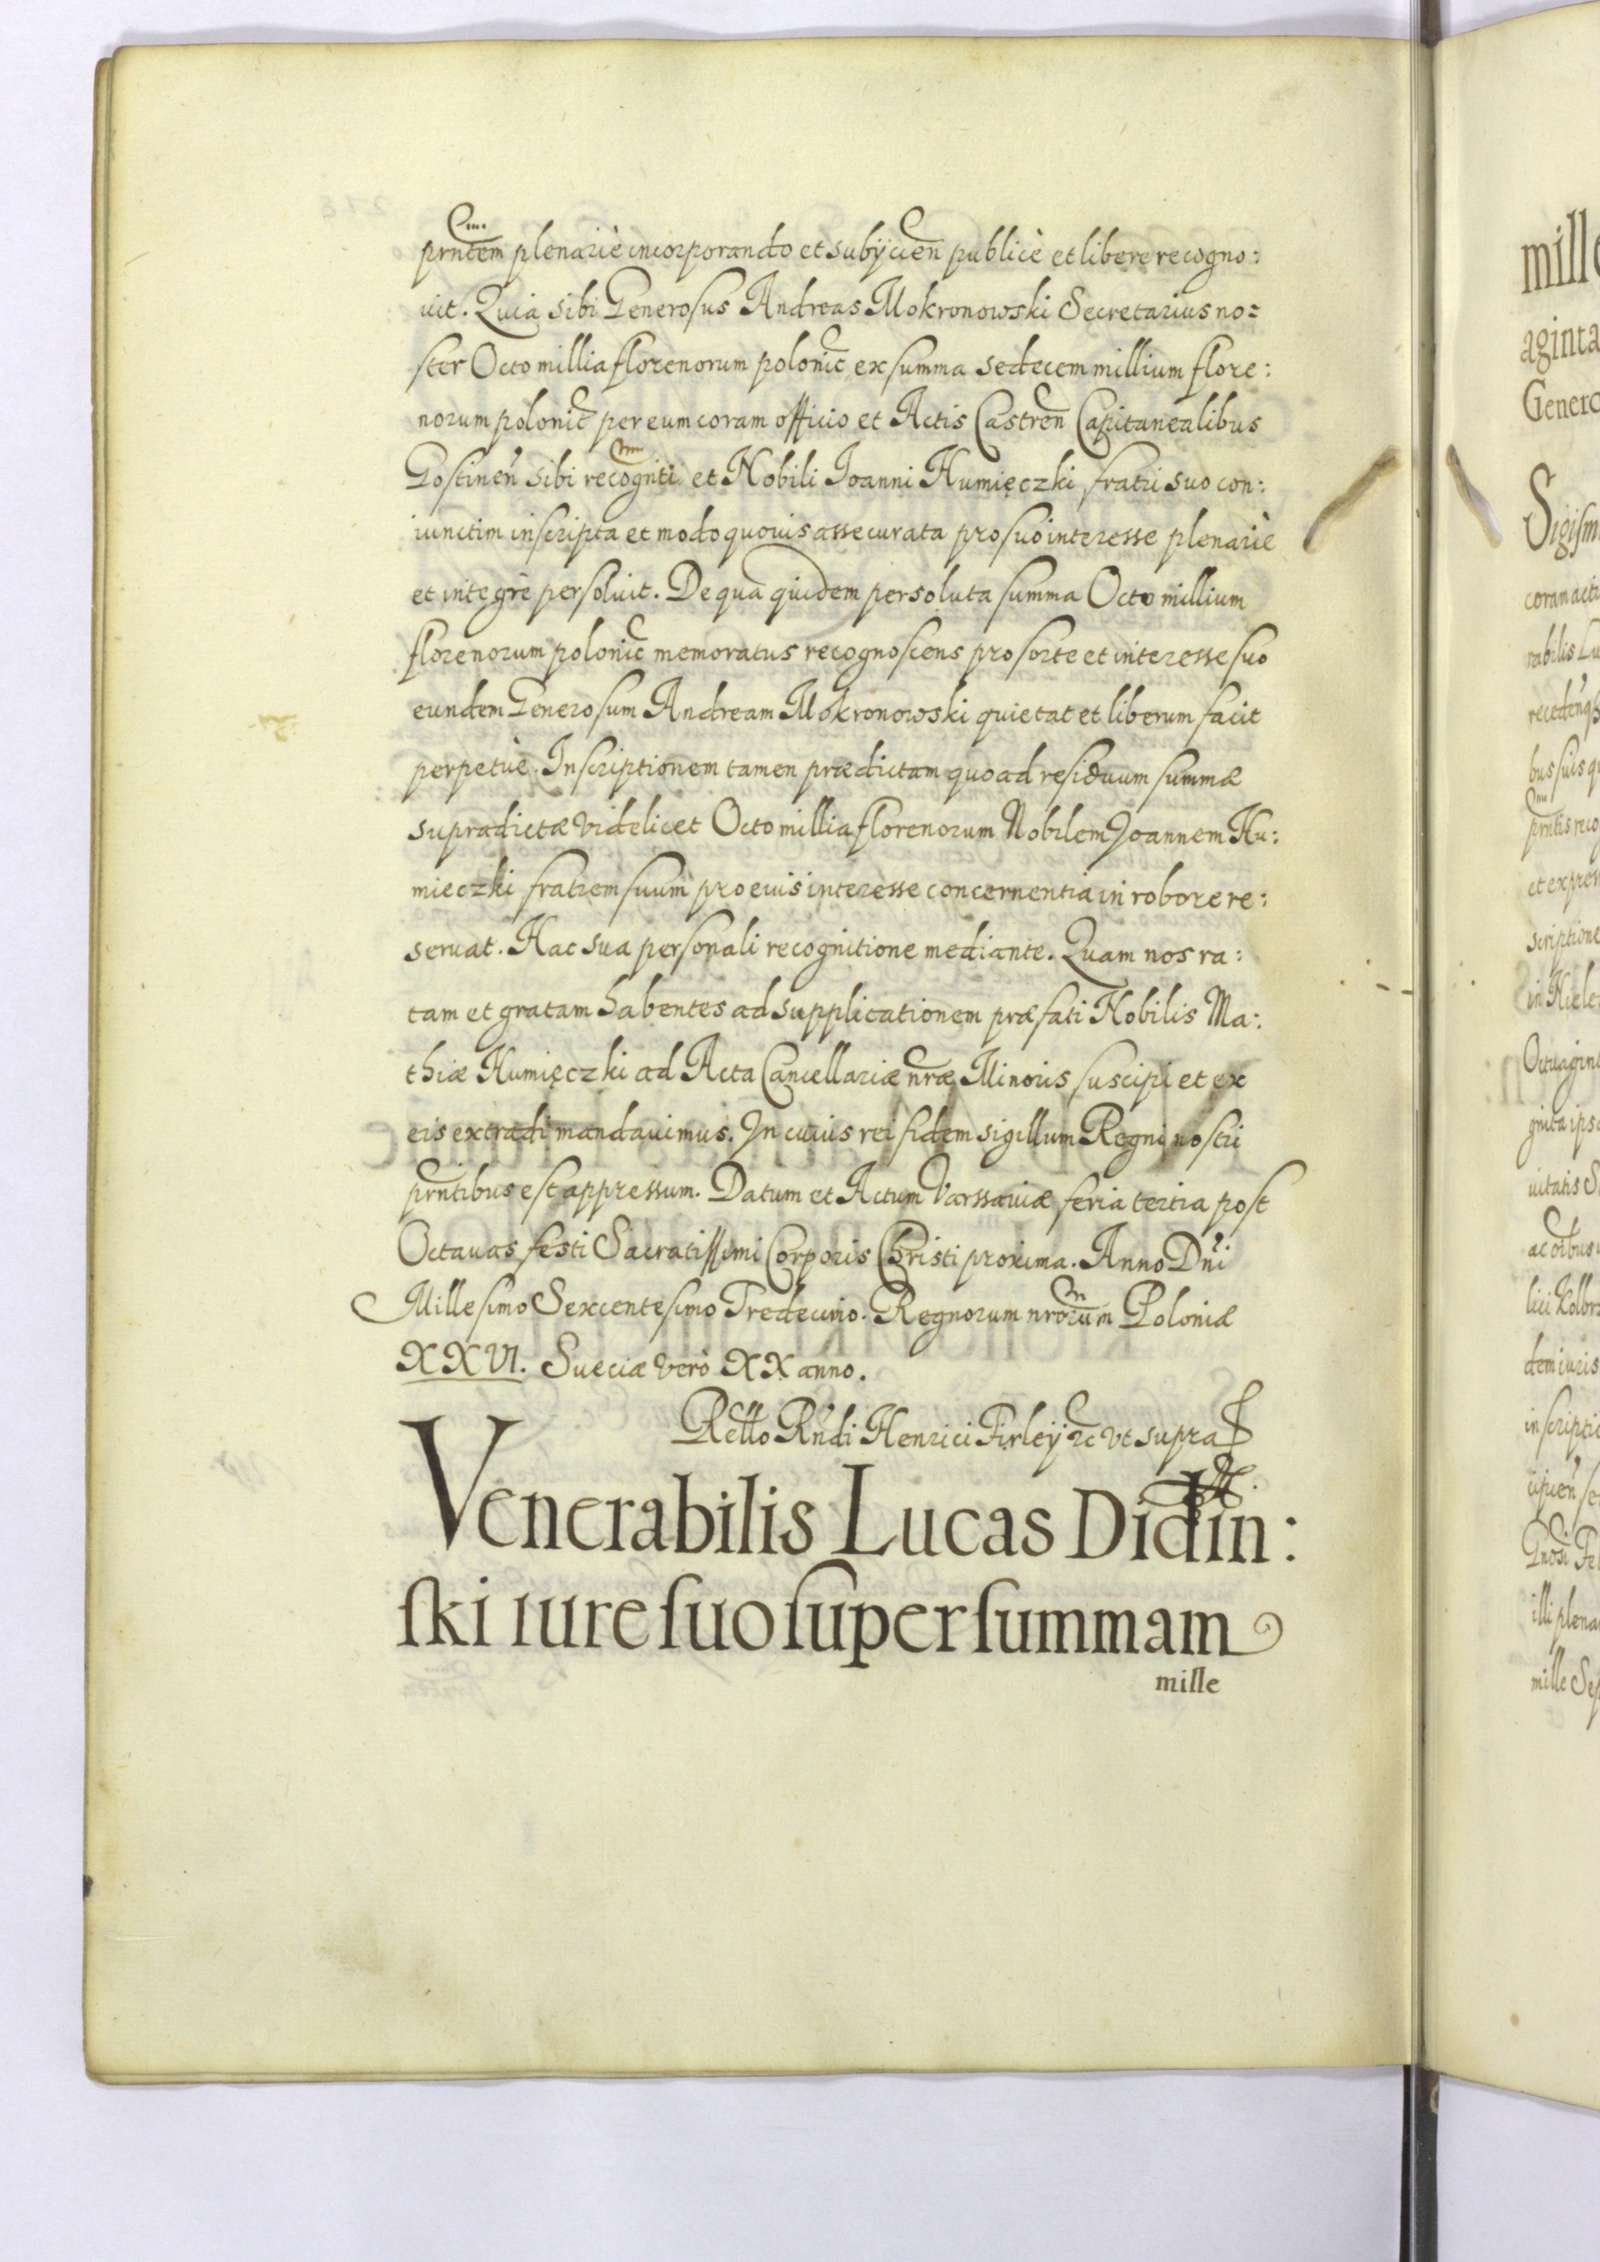 prntem plenariè incorporando et subijcien publicè et libere recogno:
uit. Quia sibi Generosus Andreas Mokronowski Secretarius no:
ster Octo millia florenorum polonic ex summa sedecem millium flore:
norum polonic per eum coram officio et Actis Castren Capitanealibus
Gostinen sibi recogniti et Nobili Ioanni Humięczki fratri suo con:
iunctim inscripta et modo quouis assecurata pro suo interesse plenariè
et integrè persoluit. De qua quidem persoluta summa Octo millium
florenorum polonic memoratus recognoscens pro sorte et interesse suo
eundem Generosum Andream Mokronowski quietat et liberum facit
perpetuè. Inscriptionem tamen prædictam quoad residuum summæ
supradictæ videlicet Octo millia florenorum Nobilem Joannem Hu:
mieczki fratrem suum pro eius interesse concernentia in robore re:
seruat. Hac sua personali recognitione mediante. Quam nos ra:
tam et gratam habentes ad supplicationem præfati Nobilis Ma:
thiæ Humięczki ad Acta Cancellariæ nræ Minoris suscipi et ex
eis extradi mandauimus. In cuius rei fidem sigillum Regni nostri
prntibus est appressum. Datum et Actum Varssauiæ feria tertia post
Octauas festi Sacratissimi Corporis Christi proxima. Anno Dni
Millesimo Sexcentesimo Tredecimo. Regnorum nrorum Poloniæ
XXVI. Sueciæ verò XX anno.
Rello Rndi Henrici Firley etc vt supra
Venerabilis Lucas Didin:
ski iure suo super summam
mille
mille
aginta
Genero
Sigism
coram acti
rabilis Lu
bus suis qu
prntis reco
et expres
scriptione
in Kiele
Octuagint
gnita ipso
uitatis S
demiuris
inscriptio
illi plena
mille Sep